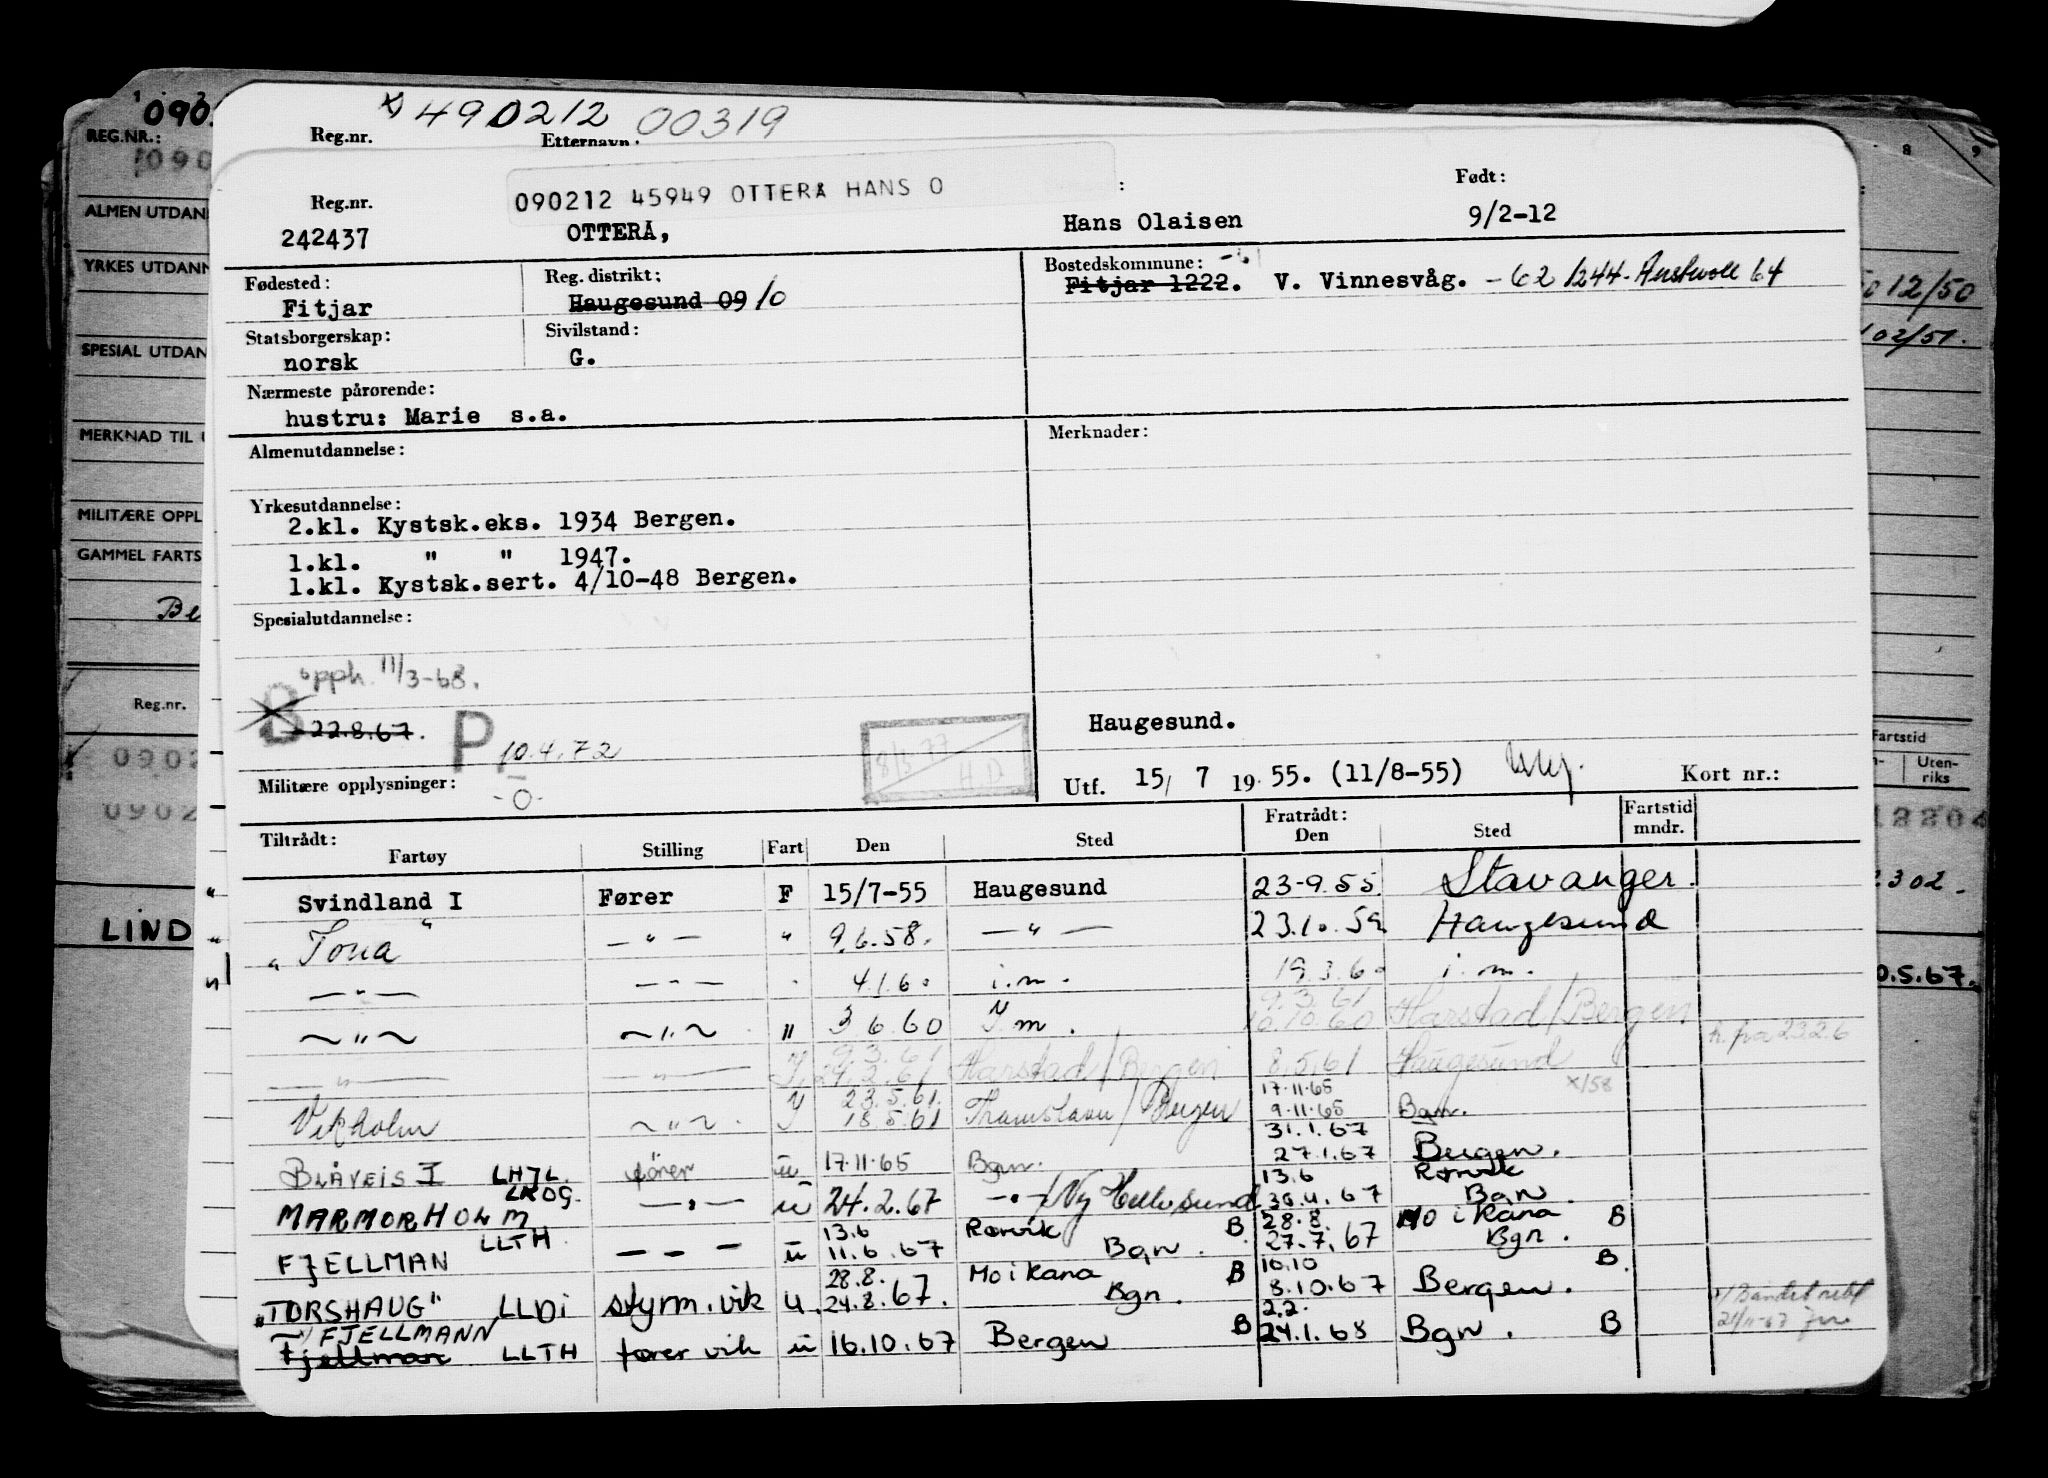 490212 00319
Reg.nr. Etternavn:
090212 45949 OTTERÅ HANS O
Reg.nr. Født:
242437 OTTERÅ, Hans Olaisen 9/2-12
Fødested: Reg. distrikt: Bostedskommune:
Fitjar Haugesund 09 10 Fitjar 1222. V. Vinnesvåg. - 62 1244 - Austevoll 64
Statsborgerskap: Sivilstand:
norsk G.
Nærmeste pårørende:
hustru: Marie s.a.
Almenutdannelse: Merknader:
Yrkesutdannelse:
2.kl. Kystsk.eks. 1934 Bergen.
1.kl. " " 1947.
1.kl. Kystsk.sert. 4/10-48 Bergen.
Spesialutdannelse:
opph. 11/3-68.
B 22.8.67. P 10.4.72 Haugesund.
8/3 77 H.D
Militære opplysninger: -0- Utf. 15/ 7 19 55. (11/8-55) Kort nr.:
Tiltrådt: Fratrådt: Fartstid
Fartøy Stilling Fart Den Sted Den Sted mndr.
Svindland I Fører F 15/7-55 Haugesund 23-9.55. Stavanger.
"Tona" — " — " 9.6.58. — " — 23.10.59 Haugesund
— " — — " — 4.1.60 i.m. 19.3.60 i.m.
9.3.61
~ " ~ ~ " ~ " 3 6 60 I m. 10.10.60 Harstad/Bergen
9.3.61
— " — — " — 24.2.61 Harstad/Bergen 8.5.61 Haugesund
23.5.61. 17.11.65
Vikholm ~ " ~ 18.5.61 / Bergen 9.11.65 Bgn.
31.1.67
BLÅVEIS I LHJL fører u 17.11.65 Bgn. 27.1.67 Bergen.
LKOG 13.6 Rørvik
MARMORHOLM — " — u 24.2.67 — " — / Ny Hellesund 30.4.67 Bgn.
13.6 Rørvik B 28.8. Mo i Rana B
FJELLMAN LLTH — — — u 11.6.67 Bgn. 27.7.67 Bgn.
28.8. Mo i Rana B 10.10 B.
"TORSHAUG" LLDI styrm. vik u. 24.8.67. Bgn. 8.10.67 Bergen.
FJELLMANN 2.2.
Fjellman LLTH fører vik u 16.10.67 Bergen B 24.1.68 Bgn. B
090
REG.NR.:
090
ALMEN UTDAN
YRKES UTDANN
SPESIAL UTDAN
MERKNAD TIL
MILITÆRE OPPL
GAMMEL FARTS
Be
Reg.nr.
0902
0902
LIND
8 9
12/50
02/51.
Fartstid
Uten-
riks
2302.
0.5.67.